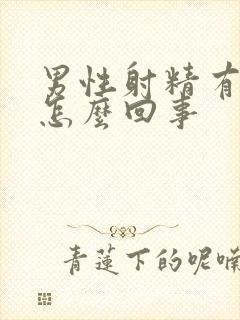 男性射精有
怎麼回事
青蓮下的呢喃